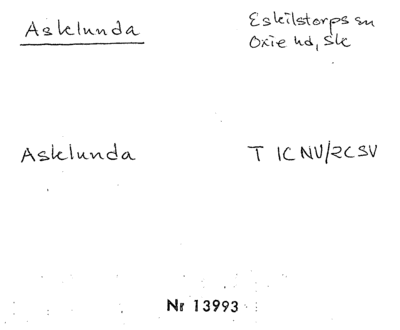 Asklunda
Eskilstorps sn
Oxie hd, Sk
Asklunda
T 1C NV/2C SV
Nr 13993